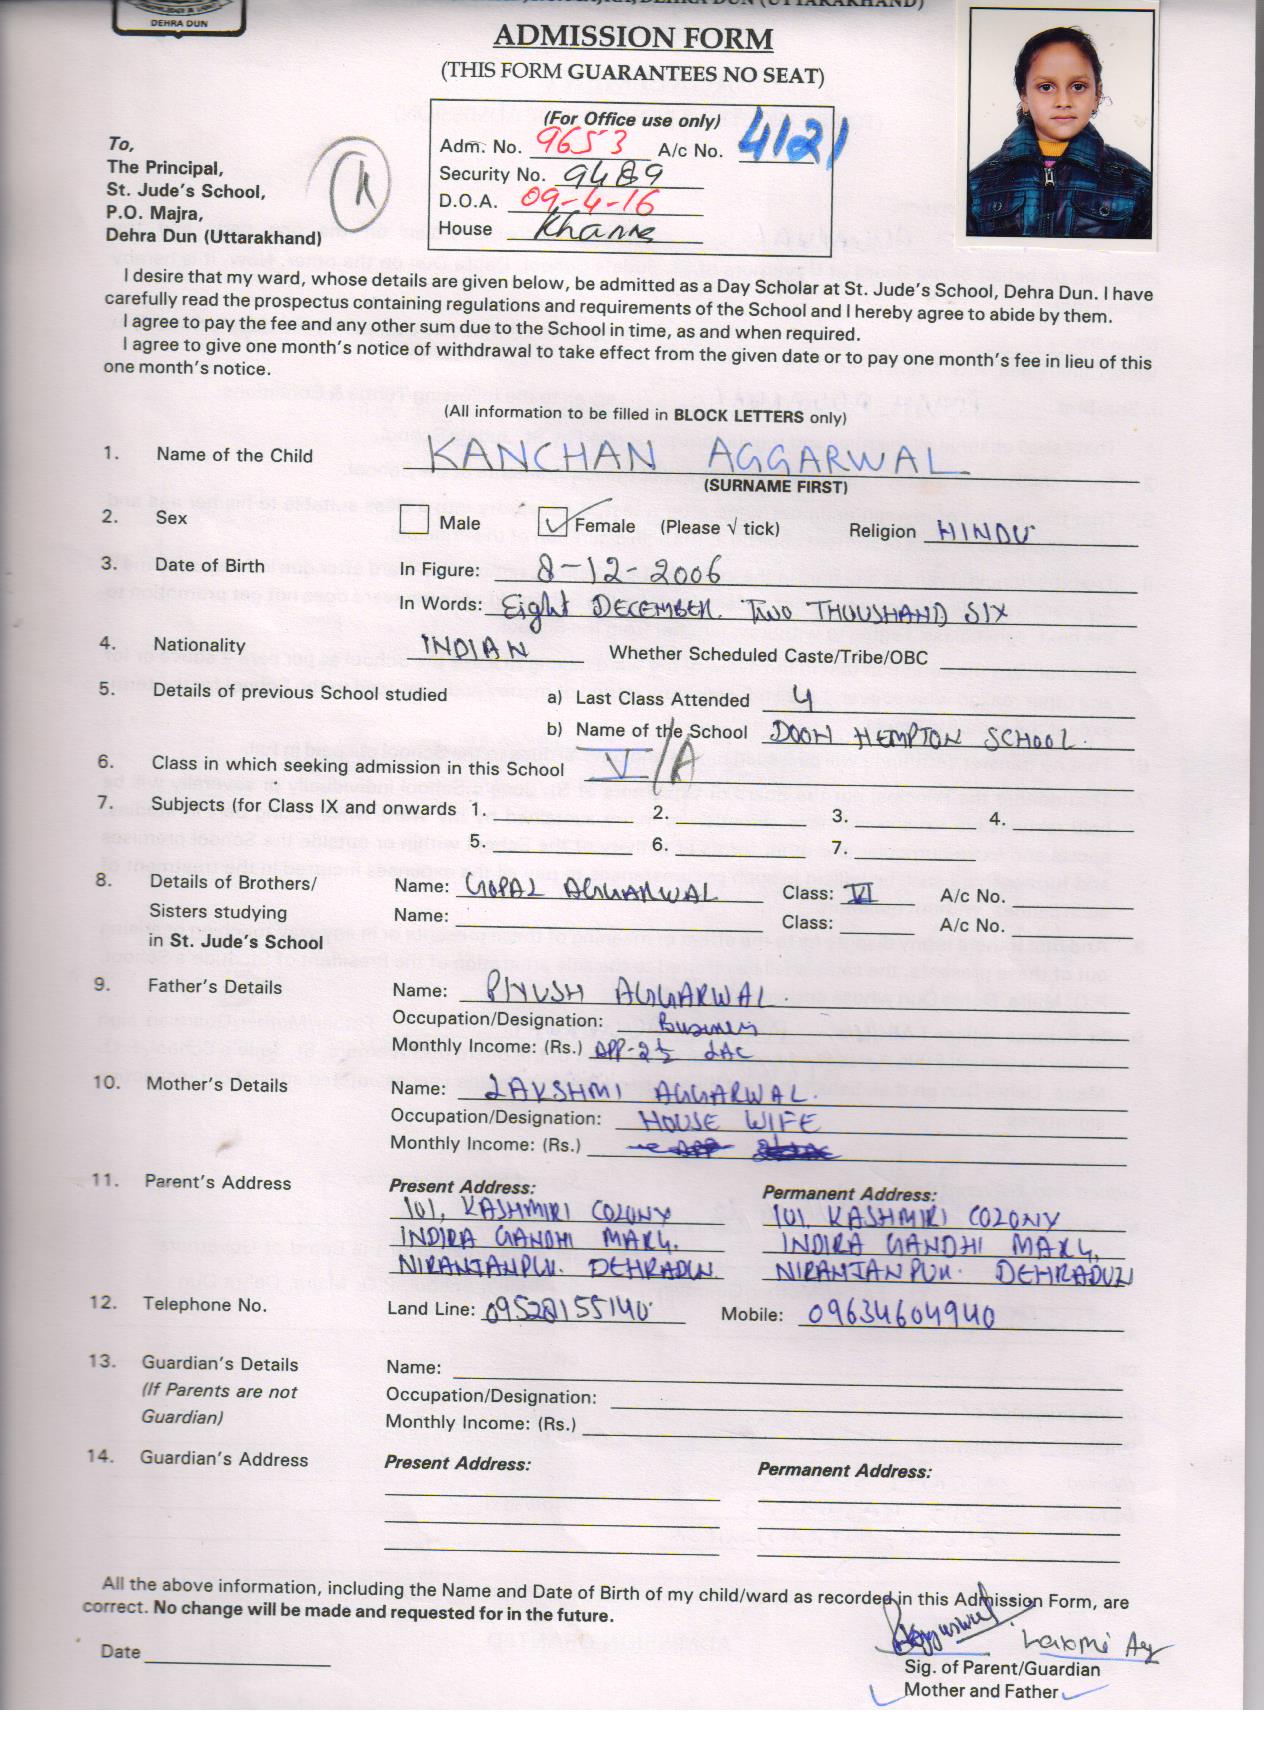 DEHRA DUN
DEHRA DUN (UTTARAKHAND)
ADMISSION FORM
(THIS FORM GUARANTEES NO SEAT)
(For Office use only)
Adm. No. 9653 A/c No. 4121
Security No. 9489
D.O.A. 09-4-16
House Khanna
To,
The Principal,
St. Jude's School,
P.O. Majra,
Dehra Dun (Uttarakhand)
I desire that my ward, whose details are given below, be admitted as a Day Scholar at St. Jude's School, Dehra Dun. I have
carefully read the prospectus containing regulations and requirements of the School and I hereby agree to abide by them.
I agree to pay the fee and any other sum due to the School in time, as and when required.
I agree to give one month's notice of withdrawal to take effect from the given date or to pay one month's fee in lieu of this
one month's notice.
(All information to be filled in BLOCK LETTERS only)
1. Name of the Child KANCHAN AGGARWAL
(SURNAME FIRST)
2. Sex Male Female (Please √ tick) Religion HINDU
3. Date of Birth In Figure: 8-12-2006
In Words: Eight DECEMBER. TWO THOUSHAND SIX
4. Nationality INDIAN Whether Scheduled Caste/Tribe/OBC
5. Details of previous School studied a) Last Class Attended 4
b) Name of the School DOON HEMPTON SCHOOL.
6. Class in which seeking admission in this School V/A
7. Subjects (for Class IX and onwards 1. 2. 3. 4.
5. 6. 7.
8. Details of Brothers/ Name: GOPAL AGGARWAL Class: VI A/c No.
Sisters studying Name: Class: A/c No.
in St. Jude's School
9. Father's Details Name: PIYUSH AGGARWAL.
Occupation/Designation: Business
Monthly Income: (Rs.) APP-2½ LAC
10. Mother's Details Name: LAKSHMI AGGARWAL.
Occupation/Designation: HOUSE WIFE
Monthly Income: (Rs.)
11. Parent's Address Present Address: Permanent Address:
101, KASHMIRI COLONY 101, KASHMIRI COLONY
INDIRA GANDHI MARG. INDIRA GANDHI MARG,
NIRANJANPUR. DEHRADUN. NIRANJANPUR. DEHRADUN
12. Telephone No. Land Line: 09528155140 Mobile: 09634604940
13. Guardian's Details Name:
(If Parents are not Occupation/Designation:
Guardian) Monthly Income: (Rs.)
14. Guardian's Address Present Address: Permanent Address:
All the above information, including the Name and Date of Birth of my child/ward as recorded in this Admission Form, are
correct. No change will be made and requested for in the future.
Laxmi Ag
Date
Sig. of Parent/Guardian
Mother and Father